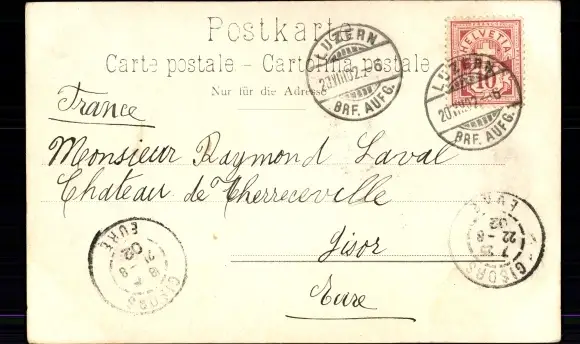 Postkarte
Carte postale – Cartolina postale
Nur für die Adresse
LUZERN
20.VIII.02.-6
BRF. AUFG.
HELVETIA
10
LUZERN
20.VIII.02.-6
BRF. AUFG.
France
Monsieur Raymond Laval
Chateau de Therreceville
Gisor
Eure
GISORS
21 - 8
02
EURE
GISORS
22 - 8
02
EURE